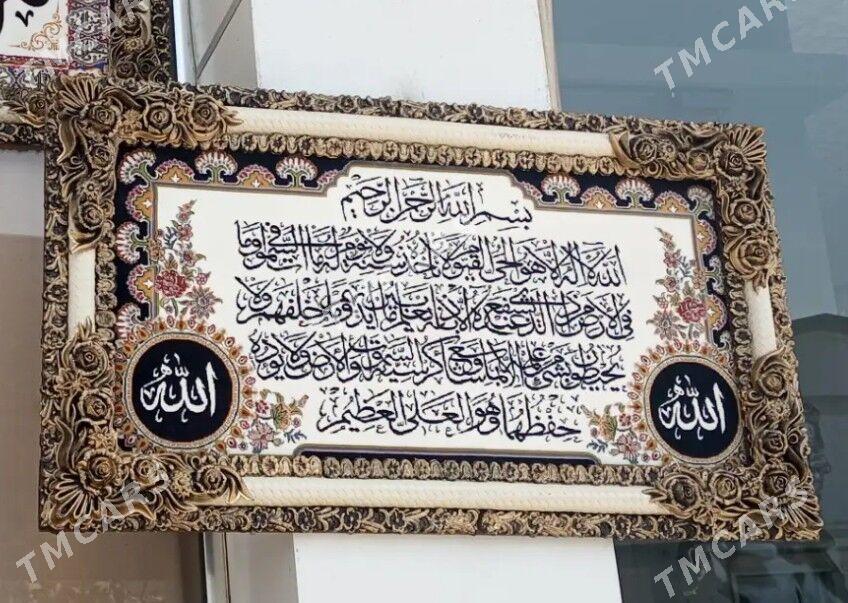 بسم الله الرحمن الرحيم
الله لا اله الا هو الحي القيوم لا تاخذه سنة ولا نوم له ما في السموات وما
في الارض من ذا الذي يشفع عنده الا باذنه يعلم ما بين ايديهم وما خلفهم ولا
يحيطون بشيء من علمه الا بما شاء وسع كرسيه السموات والارض ولا يؤده
حفظهما وهو العلي العظيم
الله
الله
TMCARS
TMCARS
TMCARS
TMCARS
TMCARS
TMCARS